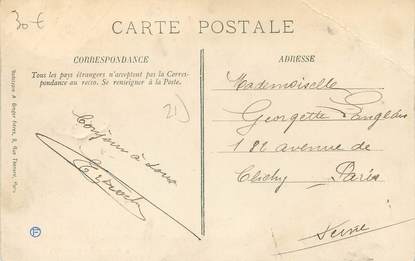 30 €
CARTE POSTALE
CORRESPONDANCE
Tous les pays étrangers n'acceptent pas la Corres-
pondance au recto. Se renseigner à la Poste.
21)
Toujours à vous
ADRESSE
Mademoiselle
Georgette Langlois
182 avenue de
Clichy Paris
Seine